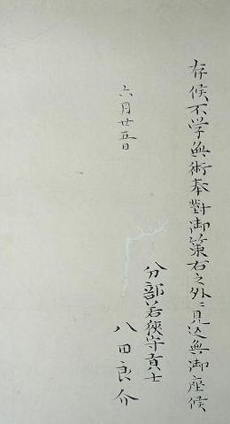 存候不学無術奉對御策右之外ニ見込無御座候
六月廿五日
分部若狭守貢士
八田良介